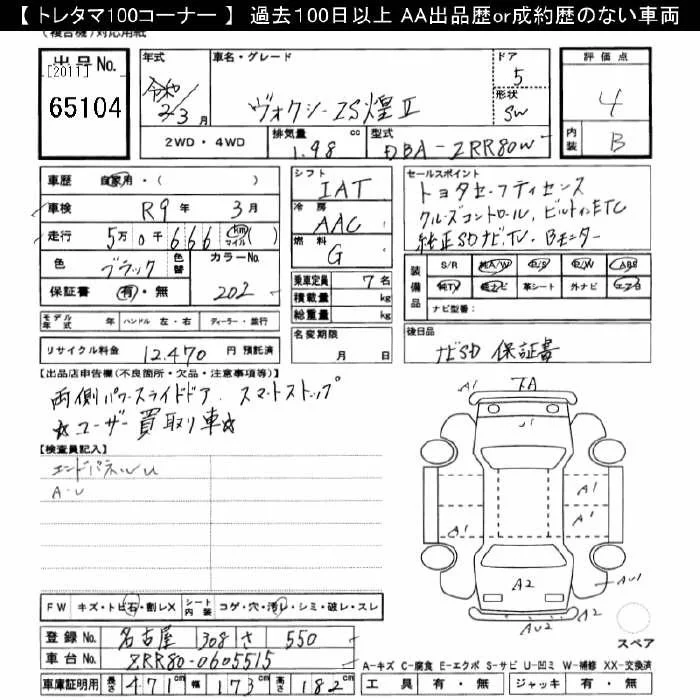 【 トレタマ100コーナー 】 過去100日以上 AA出品歴or成約歴のない車両
(複合機)対応用紙
出品No.
[2011]
65104
年式 車名・グレード ドア 評価点
令和 2/3 月 ヴォクシー ZS煌Ⅱ 5 4
形状 SW
2WD・4WD 排気量 1.98 cc 型式 DBA-ZRR80W 内装 B
車歴 自家用・( )
車検 R9 年 3 月
走行 5万 0千 666 km マイル ( )
色 ブラック 色替 カラーNo.
保証書 有・無 202
シフト IAT
冷房 AAC
燃料 G
乗車定員 7 名
積載量 kg
総重量 kg
名変期限
月 日
セールスポイント
トヨタセーフティセンス
クルーズコントロール, ビルトインETC
純正SDナビTV・Bモニター
装備品 S/R 純A/W P/S P/W ABS
純TV 純ナビ 革シート 外ナビ エアB
ナビ型番:
モデル年式 年 ハンドル 左・右 ディーラー・並行
リサイクル料金 12,470 円 預託済
後日品
ナビSD 保証書
【出品店申告欄(不良箇所・欠品・注意事項等)】
両側パワースライドドア. スマートストップ
☆ユーザー買取り車☆
【検査員記入】
エンドパネルU
A・U
A1 下A
A1 A1
A1 A1
A2 AU1
AU2 A2
スペア
FW キズ・トビ石・割レX シート内装 コゲ・穴・汚レ・シミ・破レ・スレ
登録No. 名古屋 308 さ 550
車台No. ZRR80-0605515
車庫証明用 長さ 471cm 幅 173cm 高さ 182cm
A-キズ C-腐食 E-エクボ S-サビ U-凹ミ W-補修 XX-交換済
工具 有・無 ジャッキ 有・無